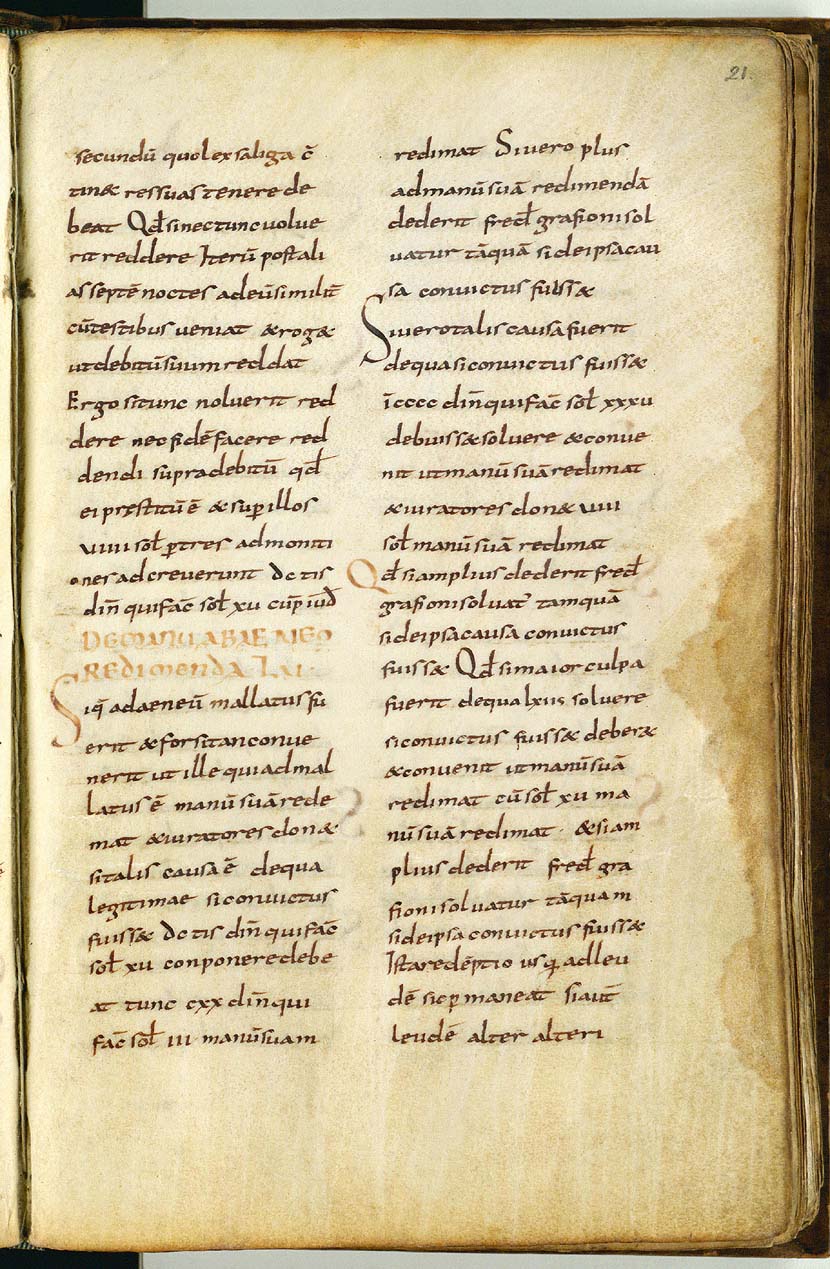 21
secundū quo lex saliga c̄
tinæ res suas tenere de
beat Qd̄ si nec tunc volue
rit reddere Iterū post ali
as septē noctes ad eū similit̄
cū testibus veniat & rogæ
ut debitū suum reddat
Ergo si tunc noluerit red
dere nec fidē facere red
dendi supra debitū qd̄
ei pręstitū ē & sup illos
viiii sol̄ p tres admoniti
ones adcreverunt dc tis
din̄ qui fac̄ sol̄ xv
DE MANU AB AENEO
REDIMENDA
Siq̄ ad aeneū mallatus fu
erit & forsitan convē
nerit ut ille qui ad mal
latus ē manū suā rede
mat & iuratores donæ
si talis causa ē de qua
legitimae si convictus
fuissæ dc tis din̄ qui fac̄
sol̄ xv conponere debe
at tunc cxx din̄ qui
fac̄ sol̄ iii manū suam
redimat Si vero plus
ad manū suā redimendā
dederit fred̄ grafioni sol
vatur tāquā si de ipsa cau
sa convictus fuissæ
Si vero talis causa fuerit
de qua si convictus fuissæ
īcccc din̄ qui fac̄ sol̄ xxxv
debuissæ solvere & conve
nit ut manū suā redimat
& iuratores donæ viiii
sol̄ manū suā redimat
Qd̄ si amplius dederit fred̄
grafioni solvat̄ tamquā
si de ipsa causa convictus
fuissæ Qd̄ si maior culpa
fuerit de qua lxiis solvere
si convictus fuissæ deberæ
& convenit ut manū suā
redimat cū sol̄ xv ma
nū suā redimat · & si am
plius dederit fred̄ gra
fioni solvatur tāquam
si de ipsa convictus fuissæ
Ista redēptio usq; ad leu
dē sic pmaneat si aut̄
leudē alter alteri